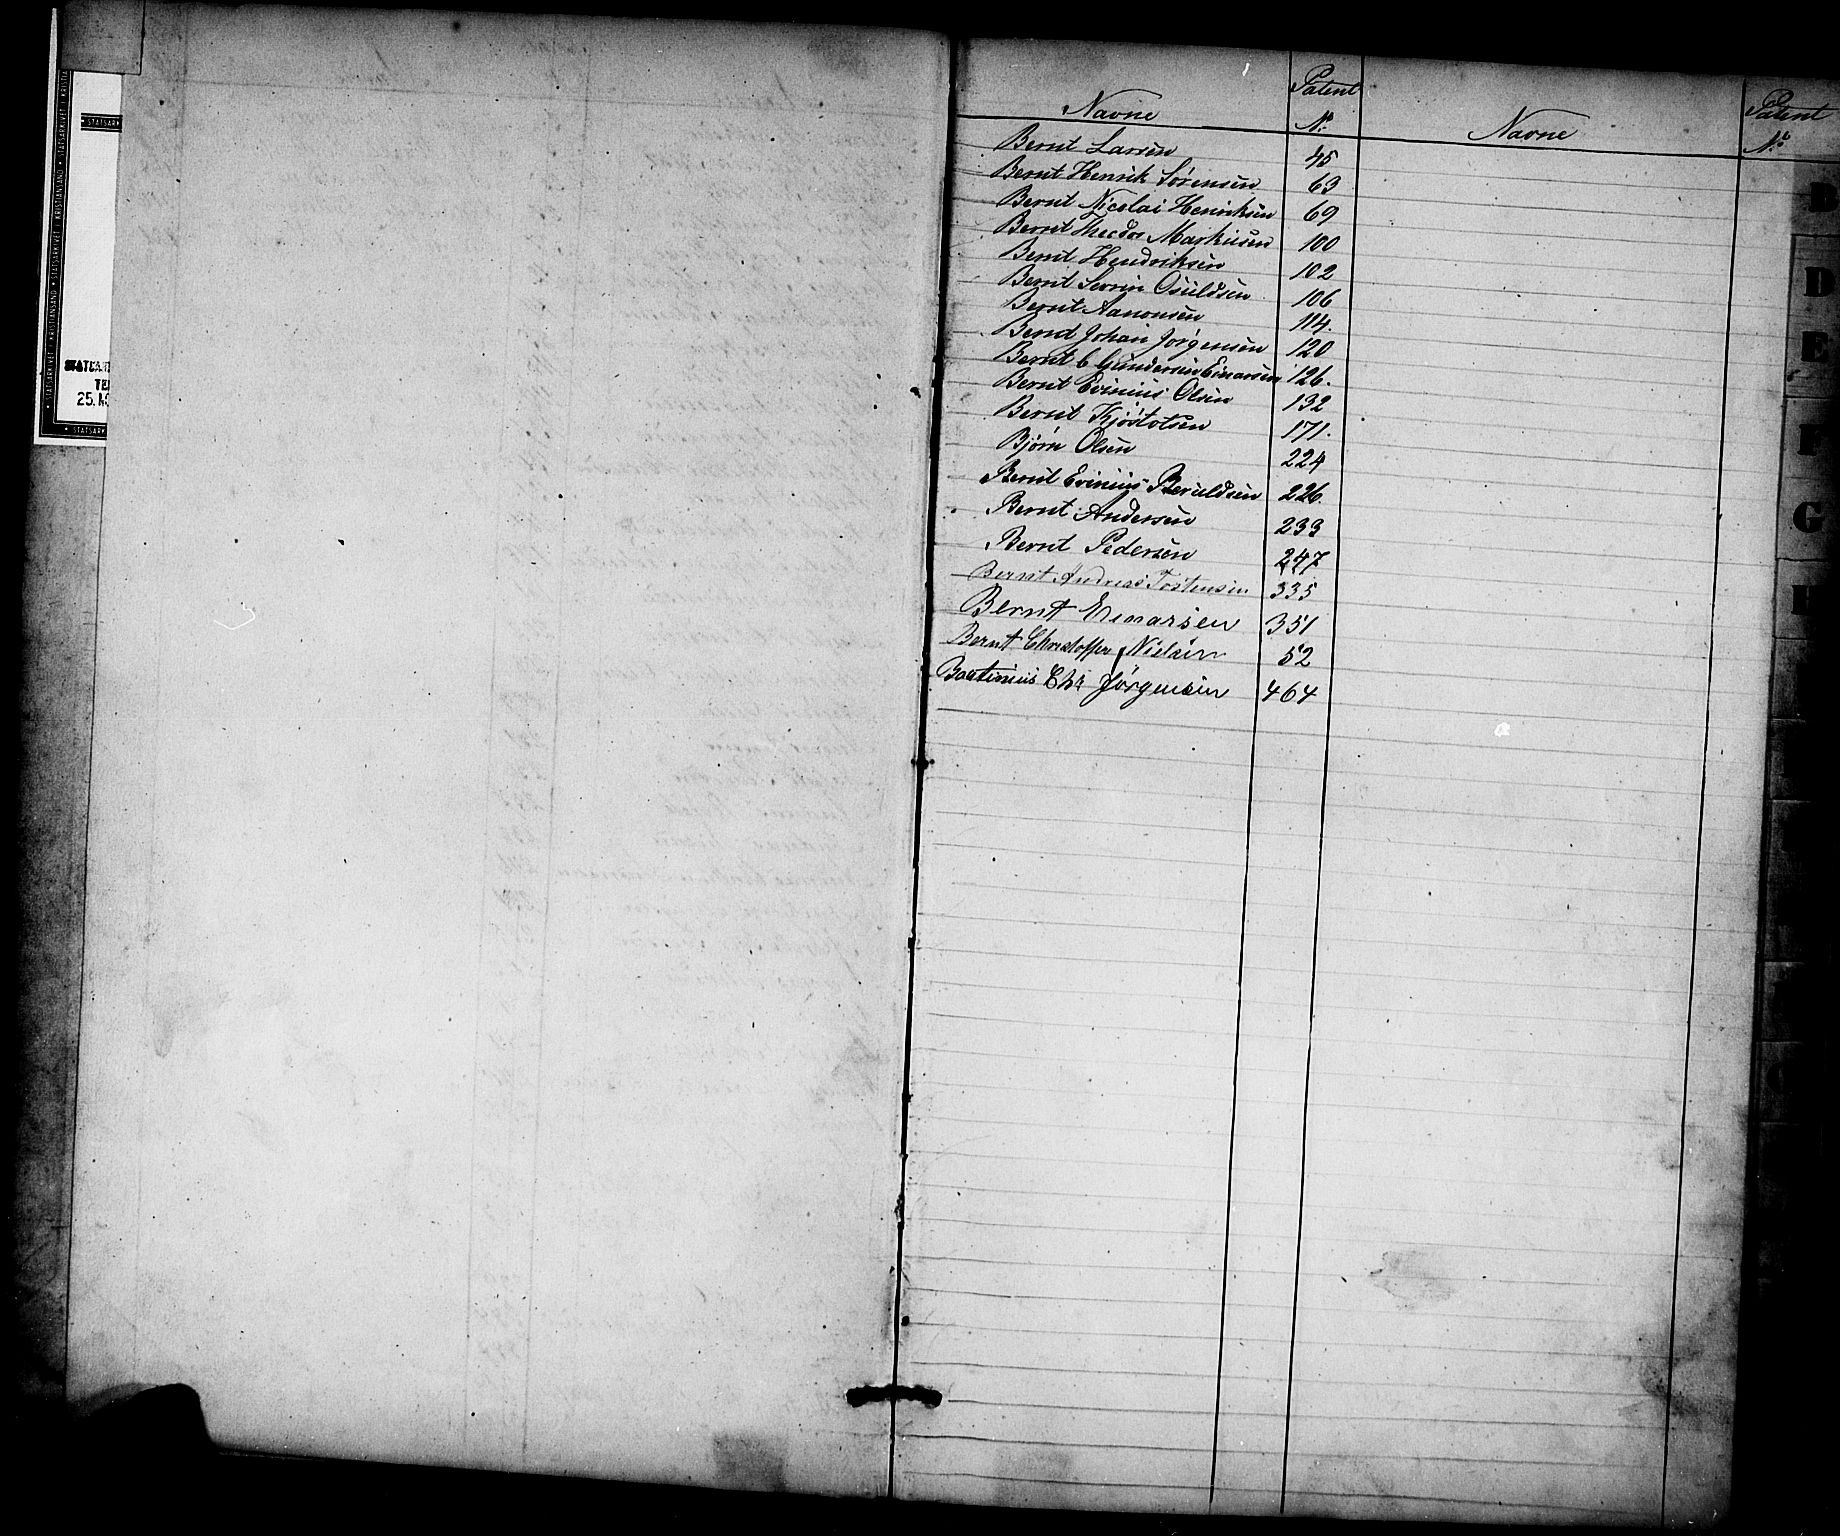 Navne Patent No. Navne Patent No.
Bernt Larsen 45
Bernt Henrik Sørensen 63
Bernt Nicolai Henriksen 69
Bernt Theodor Markusen 100
Bernt Hendriksen 102
Bernt Severin Osuldsen 106
Bernt Aanonsen 114.
Bernd Johan Jørgensen 120
Bernt C Gundersen Einarsen 126.
Bernt Evinius Olsen 132
Bernt Kjøstolsen 171.
Bjørn Olsen 224
Bernt Evinius Beruldsen 226.
Bernt Andersen 233
Bernt Pedersen 247
Bernt Andreas Tostensen 335
Bernt Einarsen 351
Bernt Christoffer Nielsen 52
Bastinius Chr Jørgensen 464
B
D
E
F
G
H
STATSARKIVET I KRISTIANSAND
25.